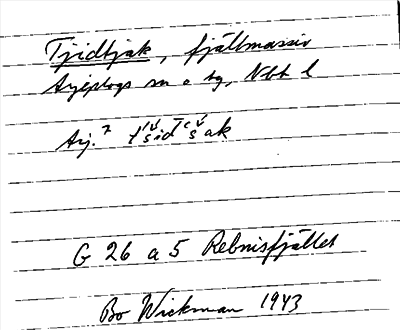 Tjidtjak, fjällmassiv
Arjeplogs sn o tg, Nbt l
Arj.
G 26 a 5 Rebnisfjället
Bo Wickman 1943